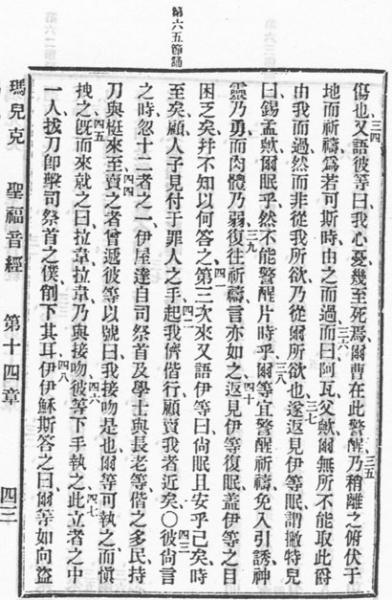 第六五節誦
三四 三五
傷也又語彼等曰我心憂幾至死焉爾曹在此警醒乃稍離之俯伏于
三六
地而祈禱爲若可斯時由之而過而曰阿瓦父歟爾無所不能取此爵
三七
由我而過然而非從我所欲乃從爾所欲也遂返見伊等眠謂撇特兒
三八
曰錫孟歟爾眠乎然不能警醒片時乎爾等宜警醒祈禱免入引誘神
三九 四十
靈乃勇而肉體乃弱復往祈禱言亦如之返見伊等復眠蓋伊等之目
四一
困乏矣幷不知以何答之第三次來又語伊等曰尙眠且安乎已矣時
四二 四三
至矣顧人子見付于罪人之手起我儕偕行顧賣我者近矣○彼尙言
之時忽十二者之一伊屋達自司祭首及學士與長老等偕之多民持
四四
刀與梃來至賣之者曾遞彼等以號曰我接吻是也爾等可執之而愼
四五 四六 四七
拽之旣而來就之曰拉韋拉韋乃與接吻彼等下手執之此立者之中
四八
一人拔刀卽擊司祭首之僕削下其耳伊伊穌斯答之曰爾等如向盜
瑪兒克 聖福音經 第十四章 四三